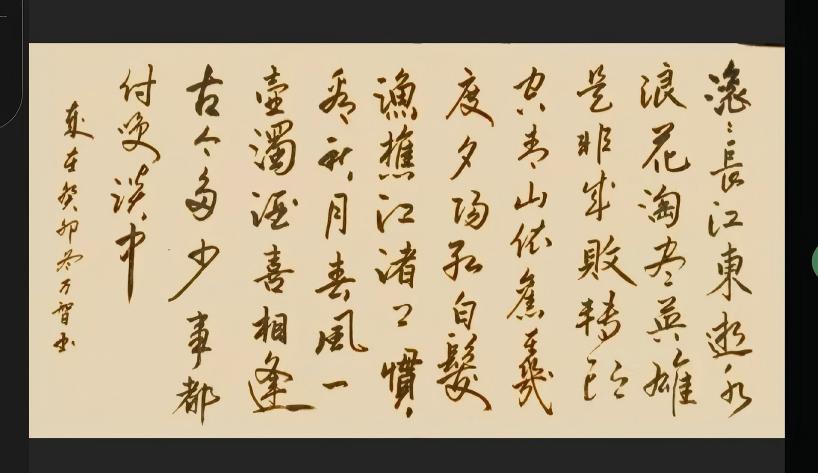 滚〻長江東逝水
浪花淘尽英雄
是非成敗轉頭
空青山依舊在幾
度夕陽紅白髮
漁樵江渚上慣
看秋月春風一
壺濁酒喜相逢
古今多少事都
付笑談中
歲在癸卯冬万智书